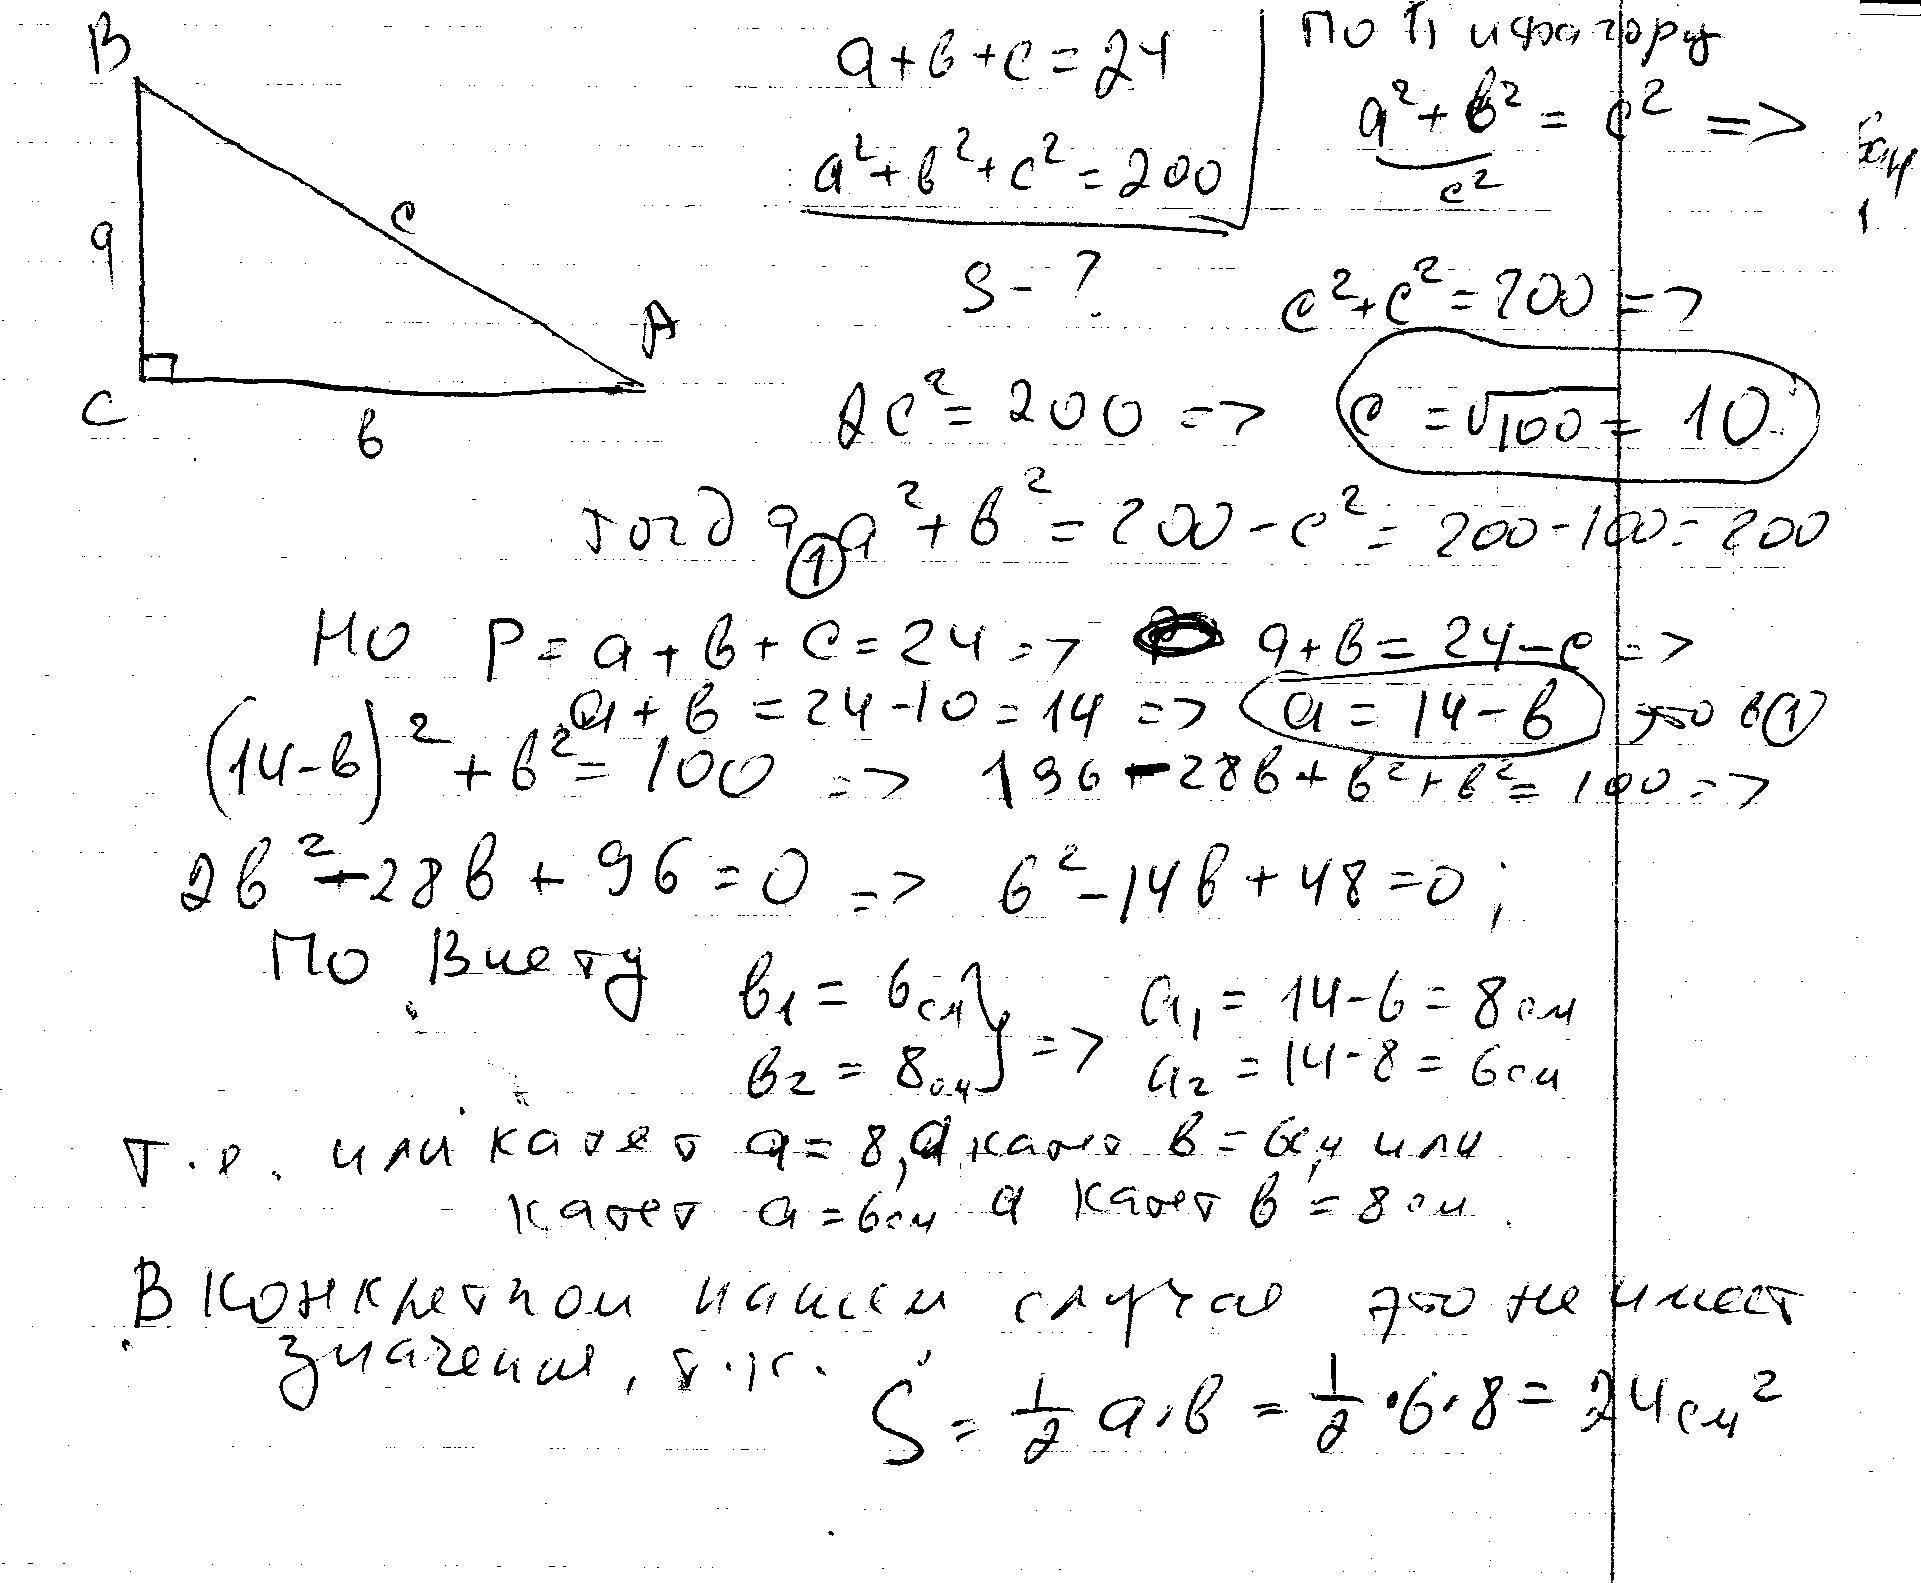 B
a
c
A
C
в
a+в+c=24
a²+в²+c²=200
S-?
По Пифагору
a²+в²=c² =>
c²
c²+c²=200 =>
2c²=200 => c=√100=10
тогда a²+в²=200-c²=200-100=200
①
Но P=a+в+c=24 => a+в=24-c =>
a+в=24-10=14 => a=14-в это в ①
(14-в)²+в²=100 => 196-28в+в²+в²=100 =>
2в²-28в+96=0 => в²-14в+48=0;
По Виету
в₁=6см } => a₁=14-6=8см
в₂=8см a₂=14-8=6см
т.е. или катет a=8, а катет в=6см, или
катет a=6см а катет в=8см.
В конкретном нашем случае это не имеет
значения, т.к.
S=1/2 a·в=1/2·6·8=24см²